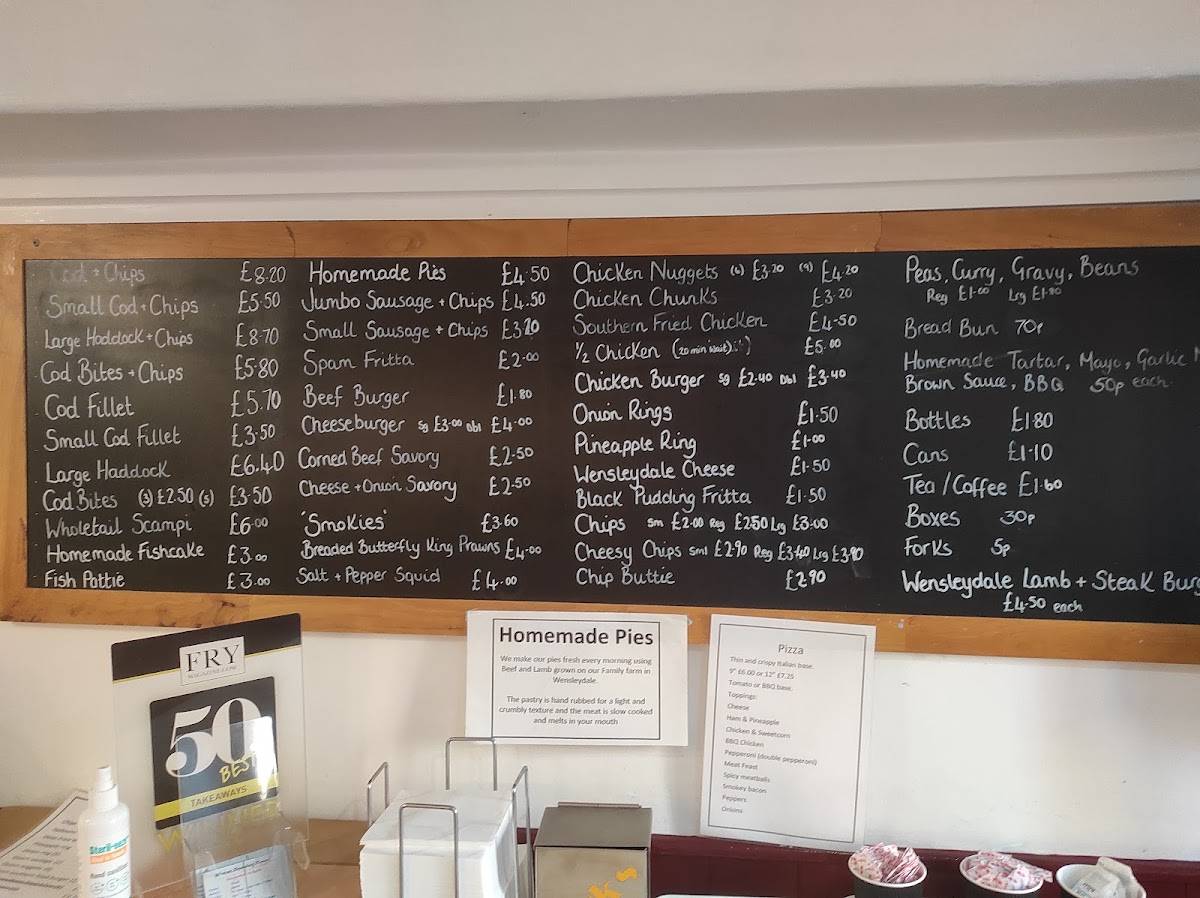 Cod + Chips £8.20
Small Cod + Chips £5.50
Large Haddock + Chips £8.70
Cod Bites + Chips £5.80
Cod Fillet £5.70
Small Cod Fillet £3.50
Large Haddock £6.40
Cod Bites (3) £2.50 (5) £3.50
Wholetail Scampi £6.00
Homemade Fishcake £3.00
Fish Pattie £3.00
Homemade Pies £4.50
Jumbo Sausage + Chips £4.50
Small Sausage + Chips £3.20
Spam Fritta £2.00
Beef Burger £1.80
Cheeseburger sg £3.00 Dbl £4.00
Corned Beef Savory £2.50
Cheese + Onion Savory £2.50
'Smokies' £3.60
Breaded Butterfly King Prawns £4.00
Salt + Pepper Squid £4.00
Chicken Nuggets (6) £3.20 (9) £4.20
Chicken Chunks £3.20
Southern Fried Chicken £4.50
1/2 Chicken (20 min wait) £5.00
Chicken Burger sg £2.40 Dbl £3.40
Onion Rings £1.50
Pineapple Ring £1.00
Wensleydale Cheese £1.50
Black Pudding Fritta £1.50
Chips sm £2.00 Reg £2.50 Lrg £3.00
Cheesy Chips sml £2.90 Reg £3.40 Lrg £3.90
Chip Buttie £2.90
Peas, Curry, Gravy, Beans
Reg £1.00 Lrg £1.80
Bread Bun 70p
Homemade Tartar, Mayo, Garlic
Brown Sauce, BBQ 50p each
Bottles £1.80
Cans £1.10
Tea/Coffee £1.60
Boxes 30p
Forks 5p
Wensleydale Lamb + Steak Burg
£4.50 each
FRY
MAGAZINE.COM
50
BEST
TAKEAWAYS
Homemade Pies
We make our pies fresh every morning using
Beef and Lamb grown on our Family farm in
Wensleydale.
The pastry is hand rubbed for a light and
crumbly texture and the meat is slow cooked
and melts in your mouth
Pizza
Thin and crispy Italian base.
9" £6.00 or 12" £7.25
Tomato or BBQ base.
Toppings:
Cheese
Ham & Pineapple
Chicken & Sweetcorn
BBQ Chicken
Pepperoni (double pepperoni)
Meat Feast
Spicy meatballs
Smokey bacon
Peppers
Onions